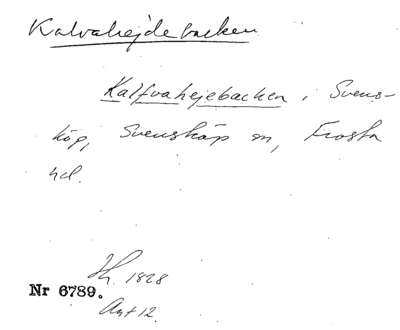 Kalvahejdebacken
Kalfvahejebacken i Svens-
köp, Svensköp sn, Frosta
hd.
Jh. 1828
Nr 6789.
Akt 12.